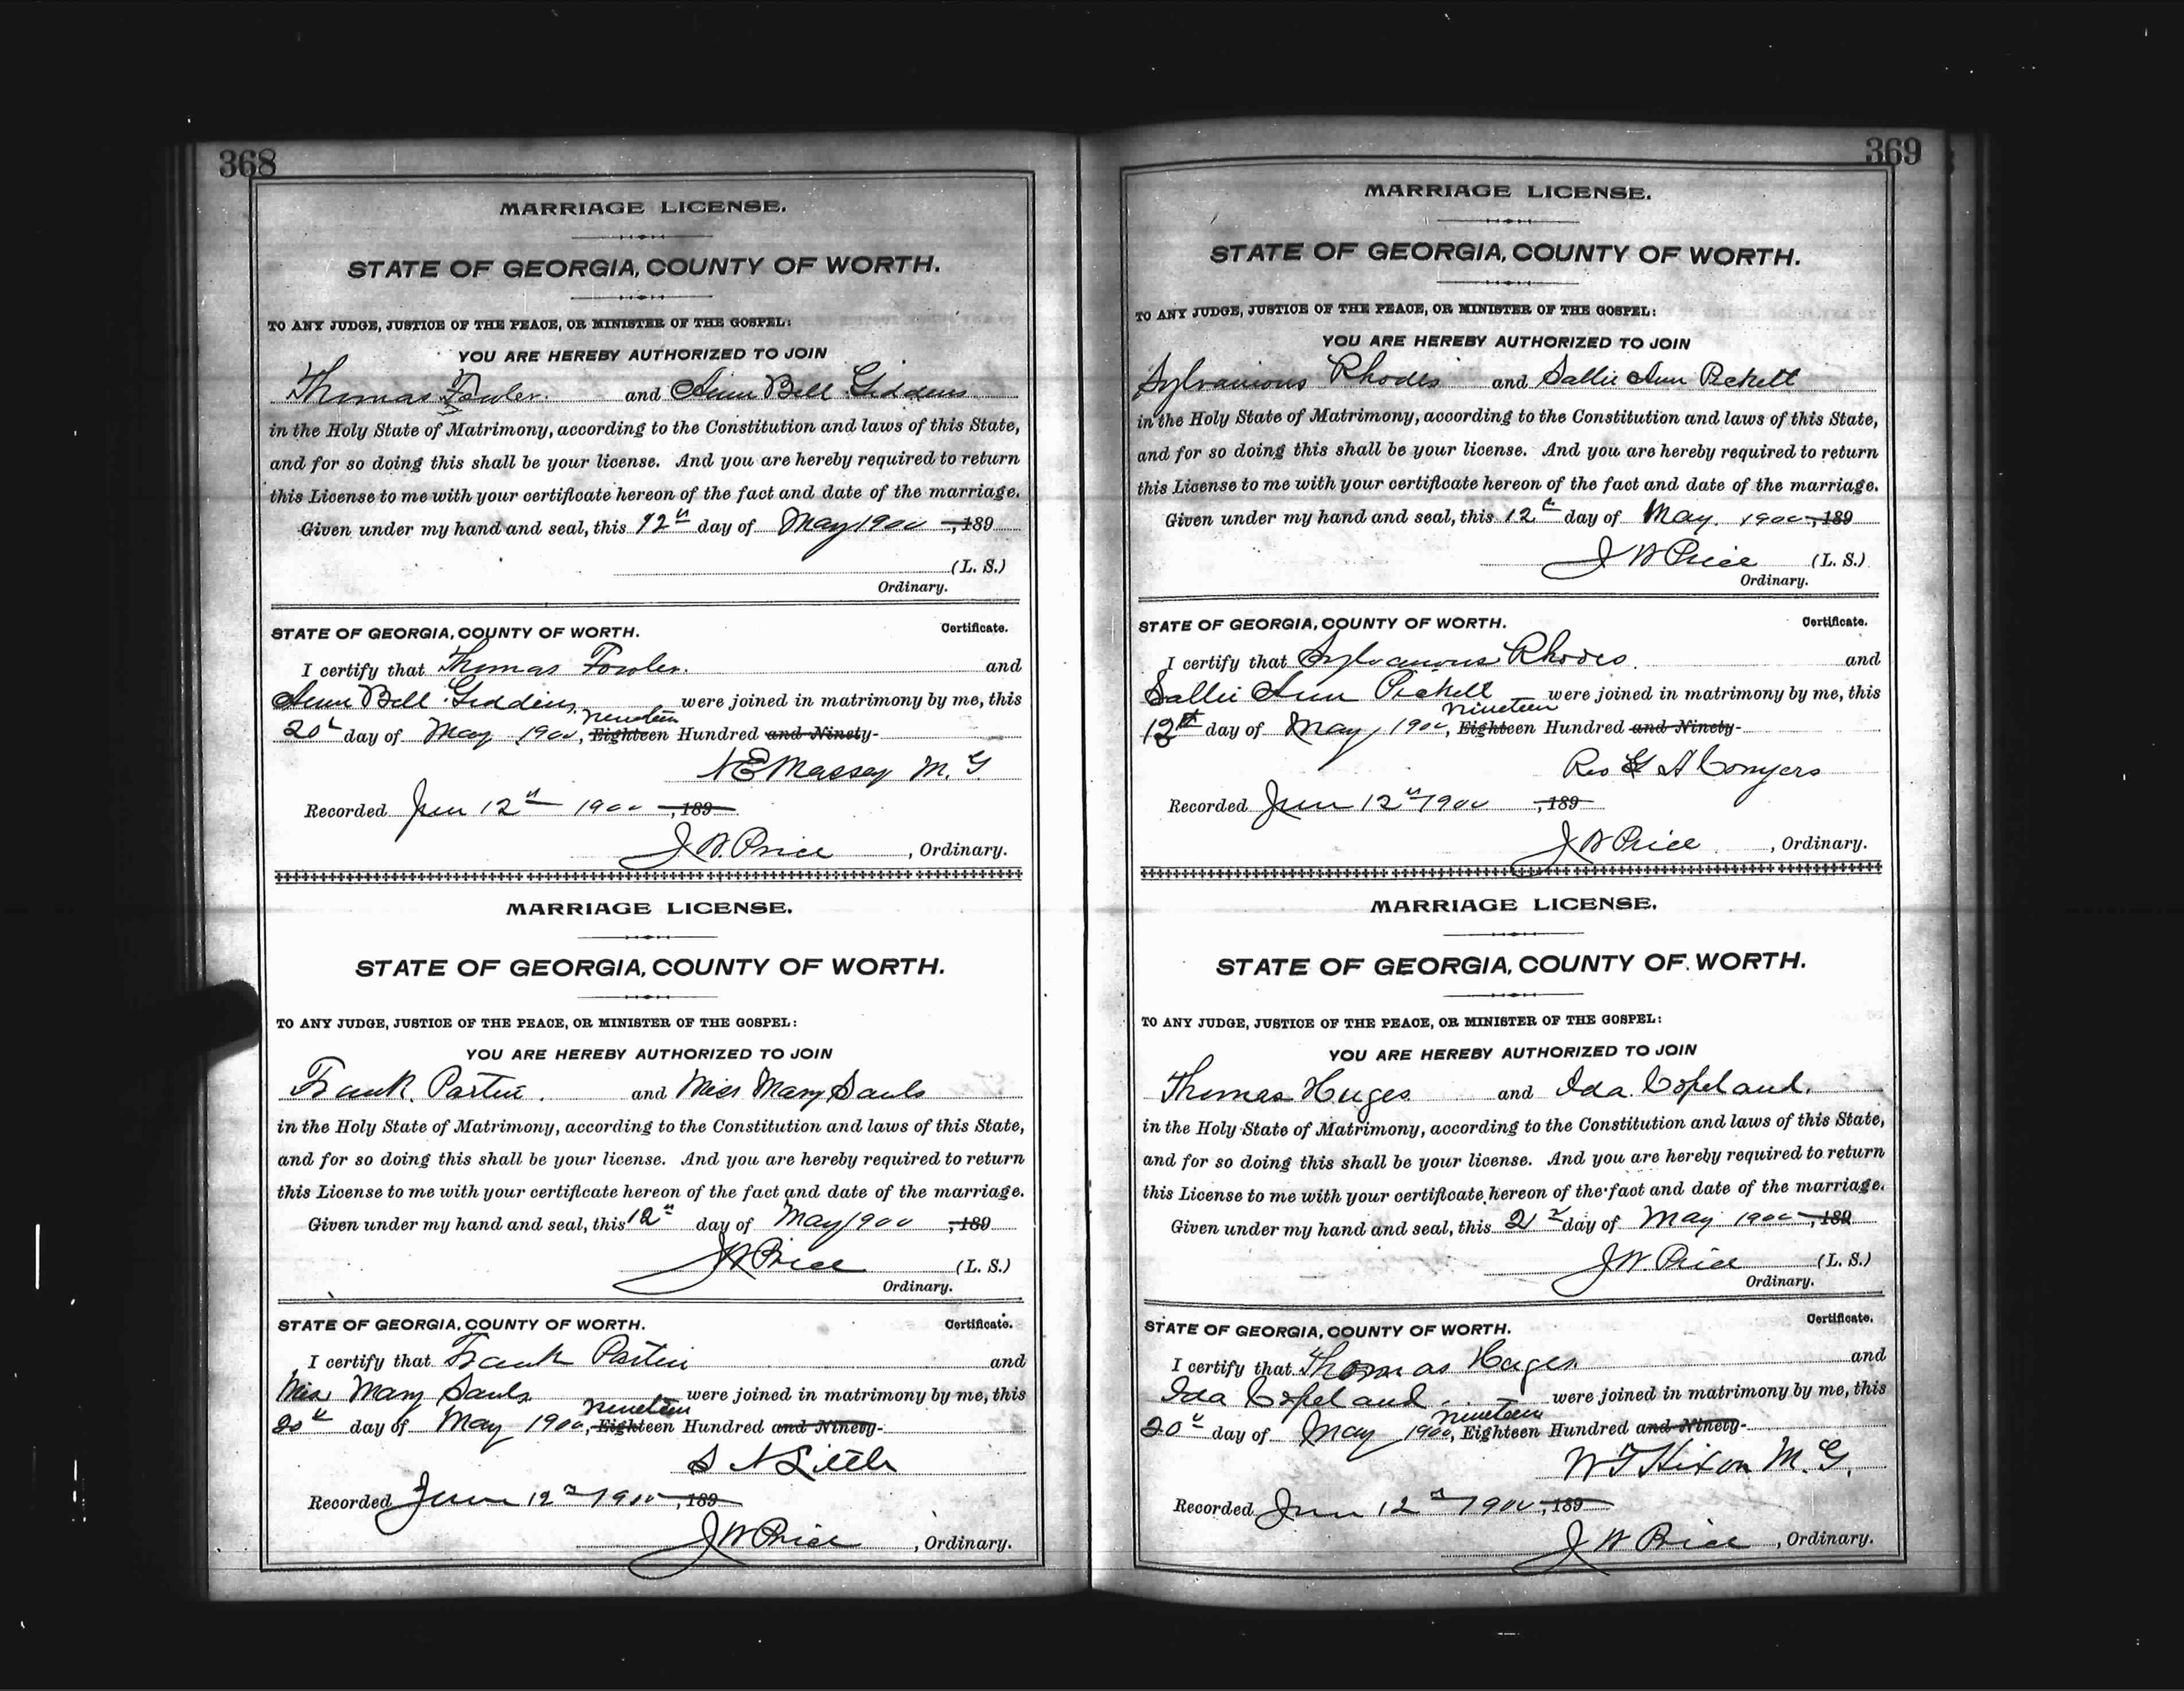 368
MARRIAGE LICENSE.
STATE OF GEORGIA, COUNTY OF WORTH.
TO ANY JUDGE, JUSTICE OF THE PEACE, OR MINISTER OF THE GOSPEL:
YOU ARE HEREBY AUTHORIZED TO JOIN
Thomas Fowler. and Ann Bell Giddens
in the Holy State of Matrimony, according to the Constitution and laws of this State,
and for so doing this shall be your license. And you are hereby required to return
this License to me with your certificate hereon of the fact and date of the marriage.
Given under my hand and seal, this 12th day of May 1900, 189
(L. S.)
Ordinary.
STATE OF GEORGIA, COUNTY OF WORTH. Certificate.
I certify that Thomas Fowler. and
Ann Bell Giddens, were joined in matrimony by me, this
nineteen
20th day of May 1900, Eighteen Hundred and Ninety-
N E Massey M. G
Recorded Jun 12th 1900, 189
J. W. Price, Ordinary.
MARRIAGE LICENSE.
STATE OF GEORGIA, COUNTY OF WORTH.
TO ANY JUDGE, JUSTICE OF THE PEACE, OR MINISTER OF THE GOSPEL:
YOU ARE HEREBY AUTHORIZED TO JOIN
Frank Partin. and Miss Mary Sauls
in the Holy State of Matrimony, according to the Constitution and laws of this State,
and for so doing this shall be your license. And you are hereby required to return
this License to me with your certificate hereon of the fact and date of the marriage.
Given under my hand and seal, this 12th day of May 1900, 189
J W Price (L. S.)
Ordinary.
STATE OF GEORGIA, COUNTY OF WORTH. Certificate.
I certify that Frank Partin and
Miss Mary Sauls were joined in matrimony by me, this
nineteen
20th day of May 1900, Eighteen Hundred and Ninety-
S N Little
Recorded June 12th 1900, 189
J W Price, Ordinary.
369
MARRIAGE LICENSE.
STATE OF GEORGIA, COUNTY OF WORTH.
TO ANY JUDGE, JUSTICE OF THE PEACE, OR MINISTER OF THE GOSPEL:
YOU ARE HEREBY AUTHORIZED TO JOIN
Sylvanious Rhodes and Sallie Ann Pickett
in the Holy State of Matrimony, according to the Constitution and laws of this State,
and for so doing this shall be your license. And you are hereby required to return
this License to me with your certificate hereon of the fact and date of the marriage.
Given under my hand and seal, this 12th day of May. 1900, 189
J W Price (L. S.)
Ordinary.
STATE OF GEORGIA, COUNTY OF WORTH. Certificate.
I certify that Sylvanious Rhodes. and
Sallie Ann Pickett were joined in matrimony by me, this
nineteen
12th day of May, 1900, Eighteen Hundred and Ninety-
Rev A Conyers
Recorded Jun 12th 1900, 189
J W Price, Ordinary.
MARRIAGE LICENSE.
STATE OF GEORGIA, COUNTY OF WORTH.
TO ANY JUDGE, JUSTICE OF THE PEACE, OR MINISTER OF THE GOSPEL:
YOU ARE HEREBY AUTHORIZED TO JOIN
Thomas Huges and Ida Copeland.
in the Holy State of Matrimony, according to the Constitution and laws of this State,
and for so doing this shall be your license. And you are hereby required to return
this License to me with your certificate hereon of the fact and date of the marriage.
Given under my hand and seal, this day of May 1900, 189
J. W. Price (L. S.)
Ordinary.
STATE OF GEORGIA, COUNTY OF WORTH. Certificate.
I certify that Thomas Huges. and
Ida Copeland. were joined in matrimony by me, this
nineteen
20th day of May 1900, Eighteen Hundred and Ninety-
W T Hixon M. G.
Recorded Jun 12th 1900, 189
J W Price, Ordinary.